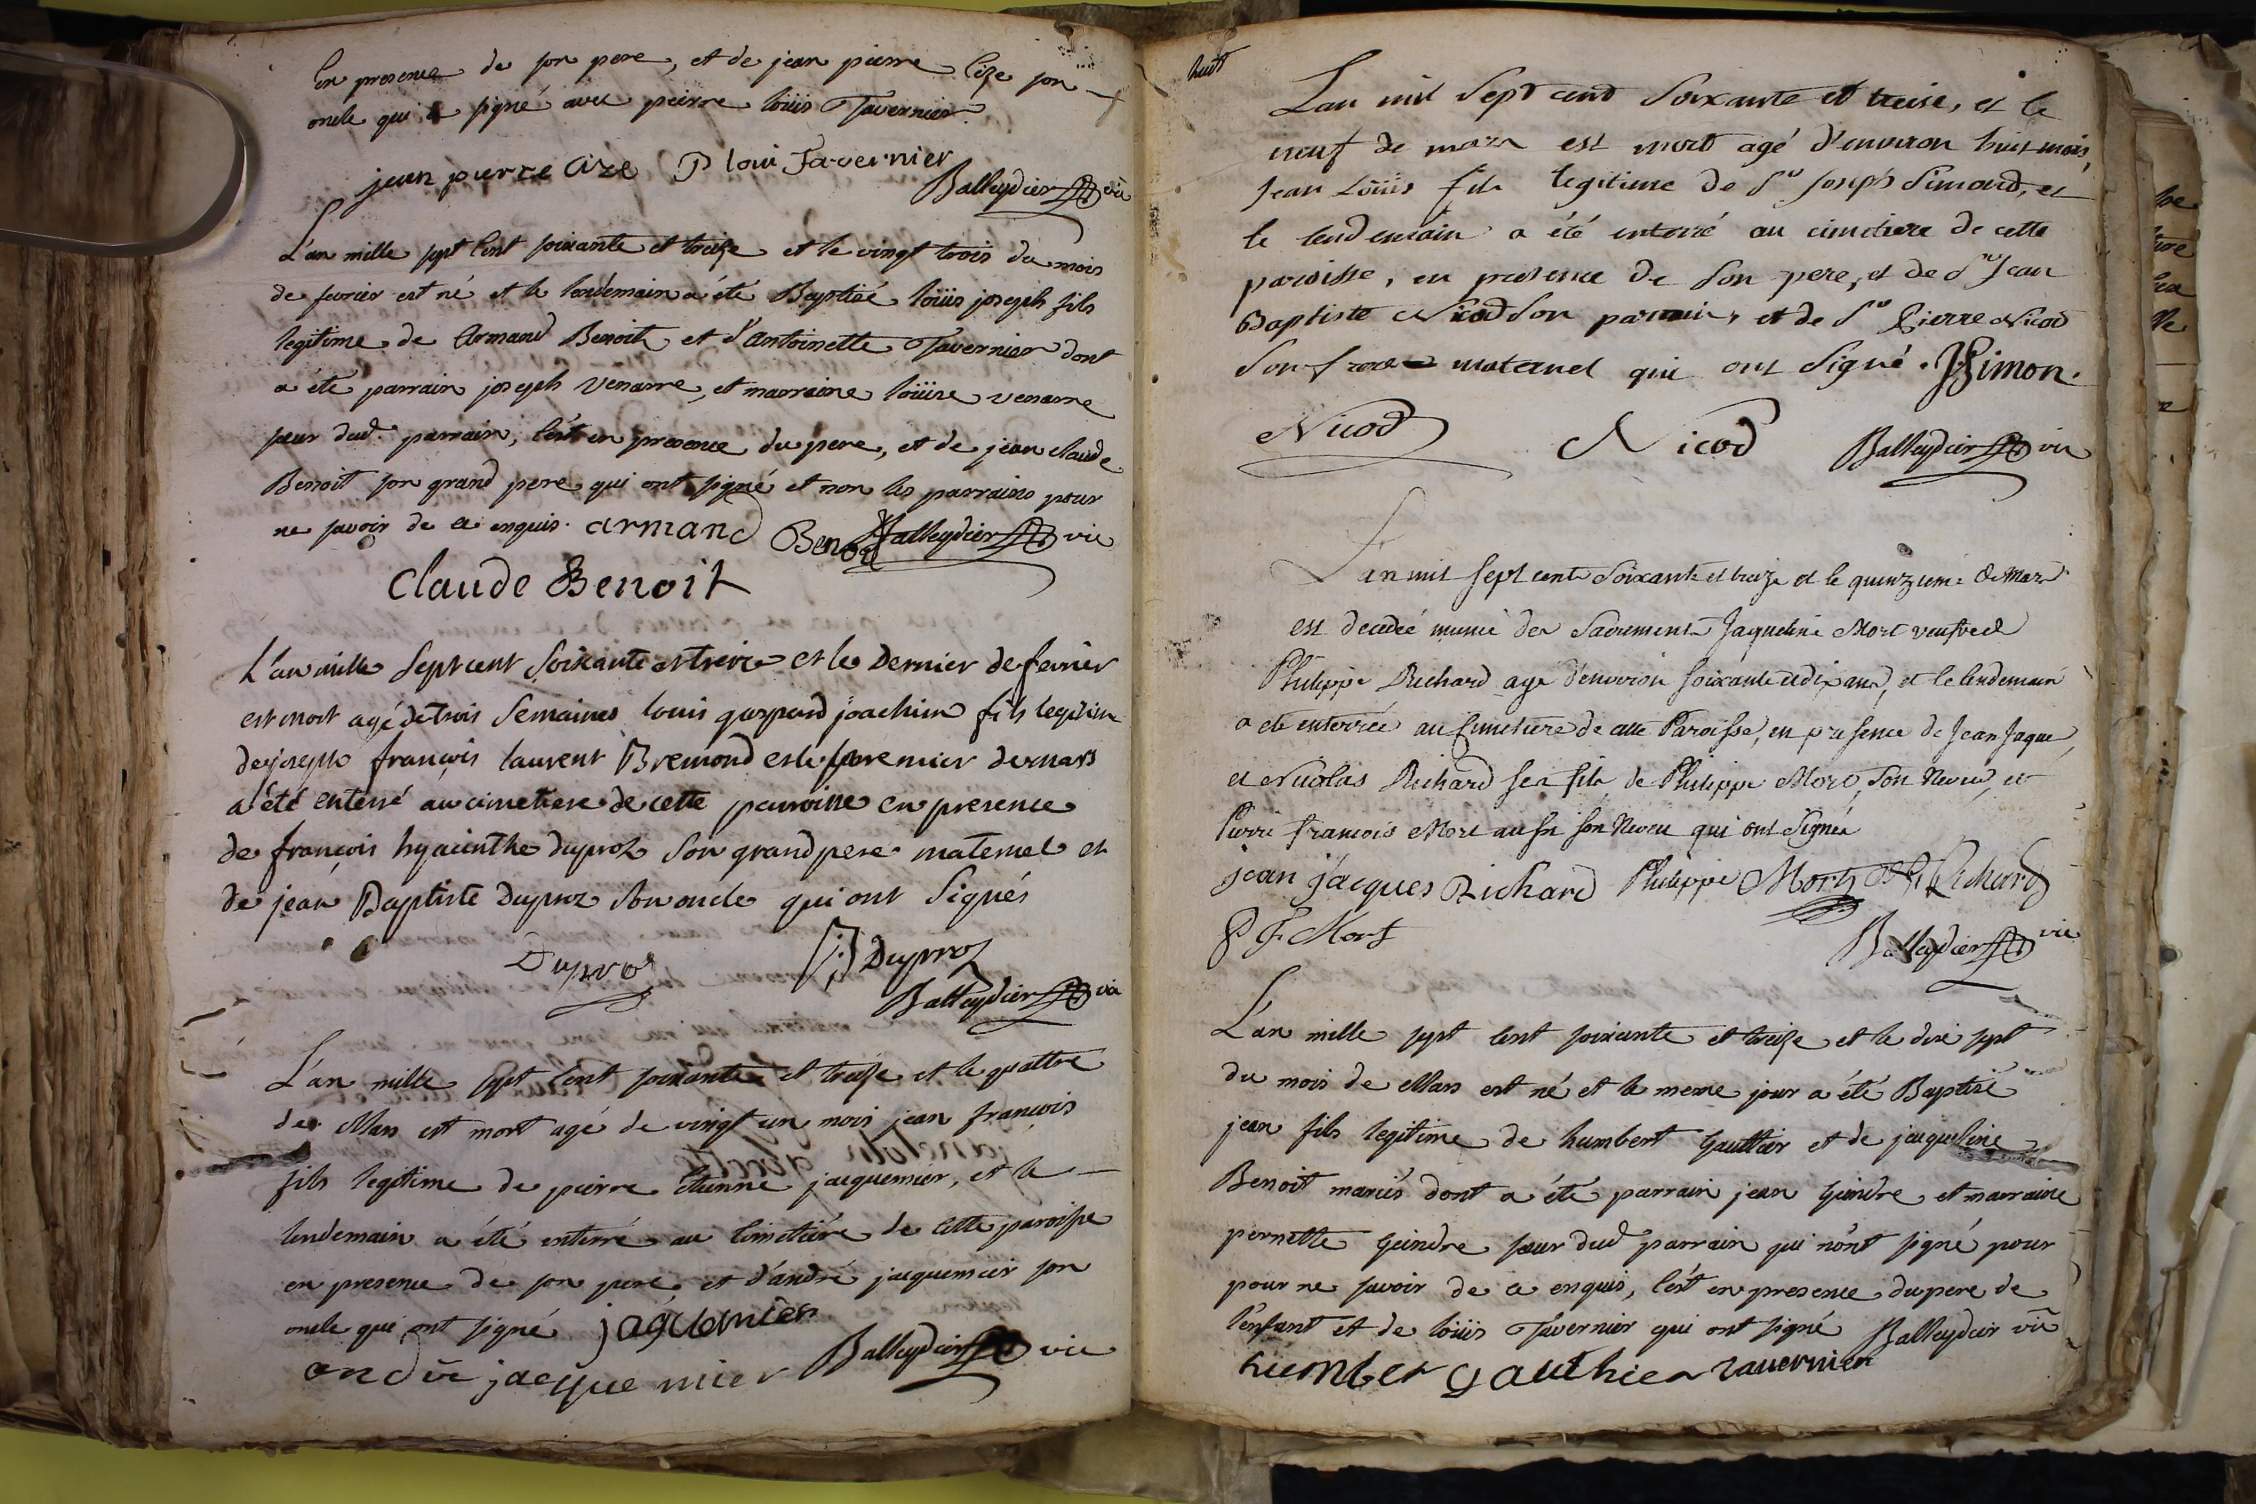 en presence de son pere, et de jean pierre Cize son
oncle qui a signé avec peirre loüis Tavernier.
jean pierre Cize P loui Tavernier
Balleydier vic
L'an mille sept cent soixante et treize et le vingt trois du mois
de fevrier est né et le lendemain a été Baptisé loüis joseph fils
legitime de Armand Benoit et d'antoinette Tavernier dont
a été parrain joseph Venarre, et marraine loüise venarre
sœur dud. parrain, c'est en presence du pere, et de jean claude
Benoit son grand pere qui ont signé et non les parrains pour
ne savoir de ce enquis. armand Benoit Balleydier vic
Claude Benoit
L'an mille sept cent soixante et treize et le Dernier de fevrier
est mort agé de trois Semaines louis gaspard joachim fils legitime
de joseph françois laurent Bremond et le premier de mars
a été enterré au cimetiere de cette parroisse en presence
de françois hyacinthe duproz son grand pere maternel et
de jean Baptiste Duproz son oncle qui ont Signés
Duproz Duproz
Balleydier vic
L'an mille sept cent soixante et treize et le quattre
de Mars est mort agé de vingt un mois jean françois
fils legitime de pierre etienne jacquemier, et le
lendemain a été enterré au Cimetiére de cette paroisse
en presence de son pere, et d'andré jacquemier son
oncle qui ont signé jaquemier
andré jacquemier Balleydier vic
huit
L'an mil Sept cent Soixante et treise, et le
neuf de mars est mort agé d'environ huit mois,
Jean Loüis fils legitime de Sr Joseph Simond, et
le lendemain a été enterré au cimetiere de cette
paroisse, en presence de Son pere, et de Sr Jean
Baptiste Nicod Son parrain, et de Sr Pierre Nicod
Son frere maternel qui ont Signé. JSimon.
Nicod Nicod Balleydier vic
L'an mil sept cent Soixante et treize et le quinzieme de Mars
est decedée munie des Sacrements Jaqueline Mort veufve de
Philippe Richard age d'environ soixante et dix ans, et le lendemain
a eté enterrée au Cimetiere de cette Paroisse, en presence de Jean Jaque,
et Nicolas Richard ses fils de Philippe Mort, Son Neveu, et
Pierre François Mort aussi son Neveu qui ont Signés
jean jacques Richard Philippe Mort N. Richard
P F Mort
Balleydier vic
L'an mille sept cent soixante et treize et le dix sept
du mois de Mars est né et le meme jour a été Baptisé
jean fils legitime de humbert Gaulthier et de jacqueline
Benoit mariés dont a été parrain jean Geindre et marraine
pernette Geindre sœur dud parrain qui n'ont signé pour
pour ne savoir de ce enquis, c'est en presence du pere de
l'enfant et de loüis Tavernier qui ont signé Balleydier vic
humber gauthier tavernier